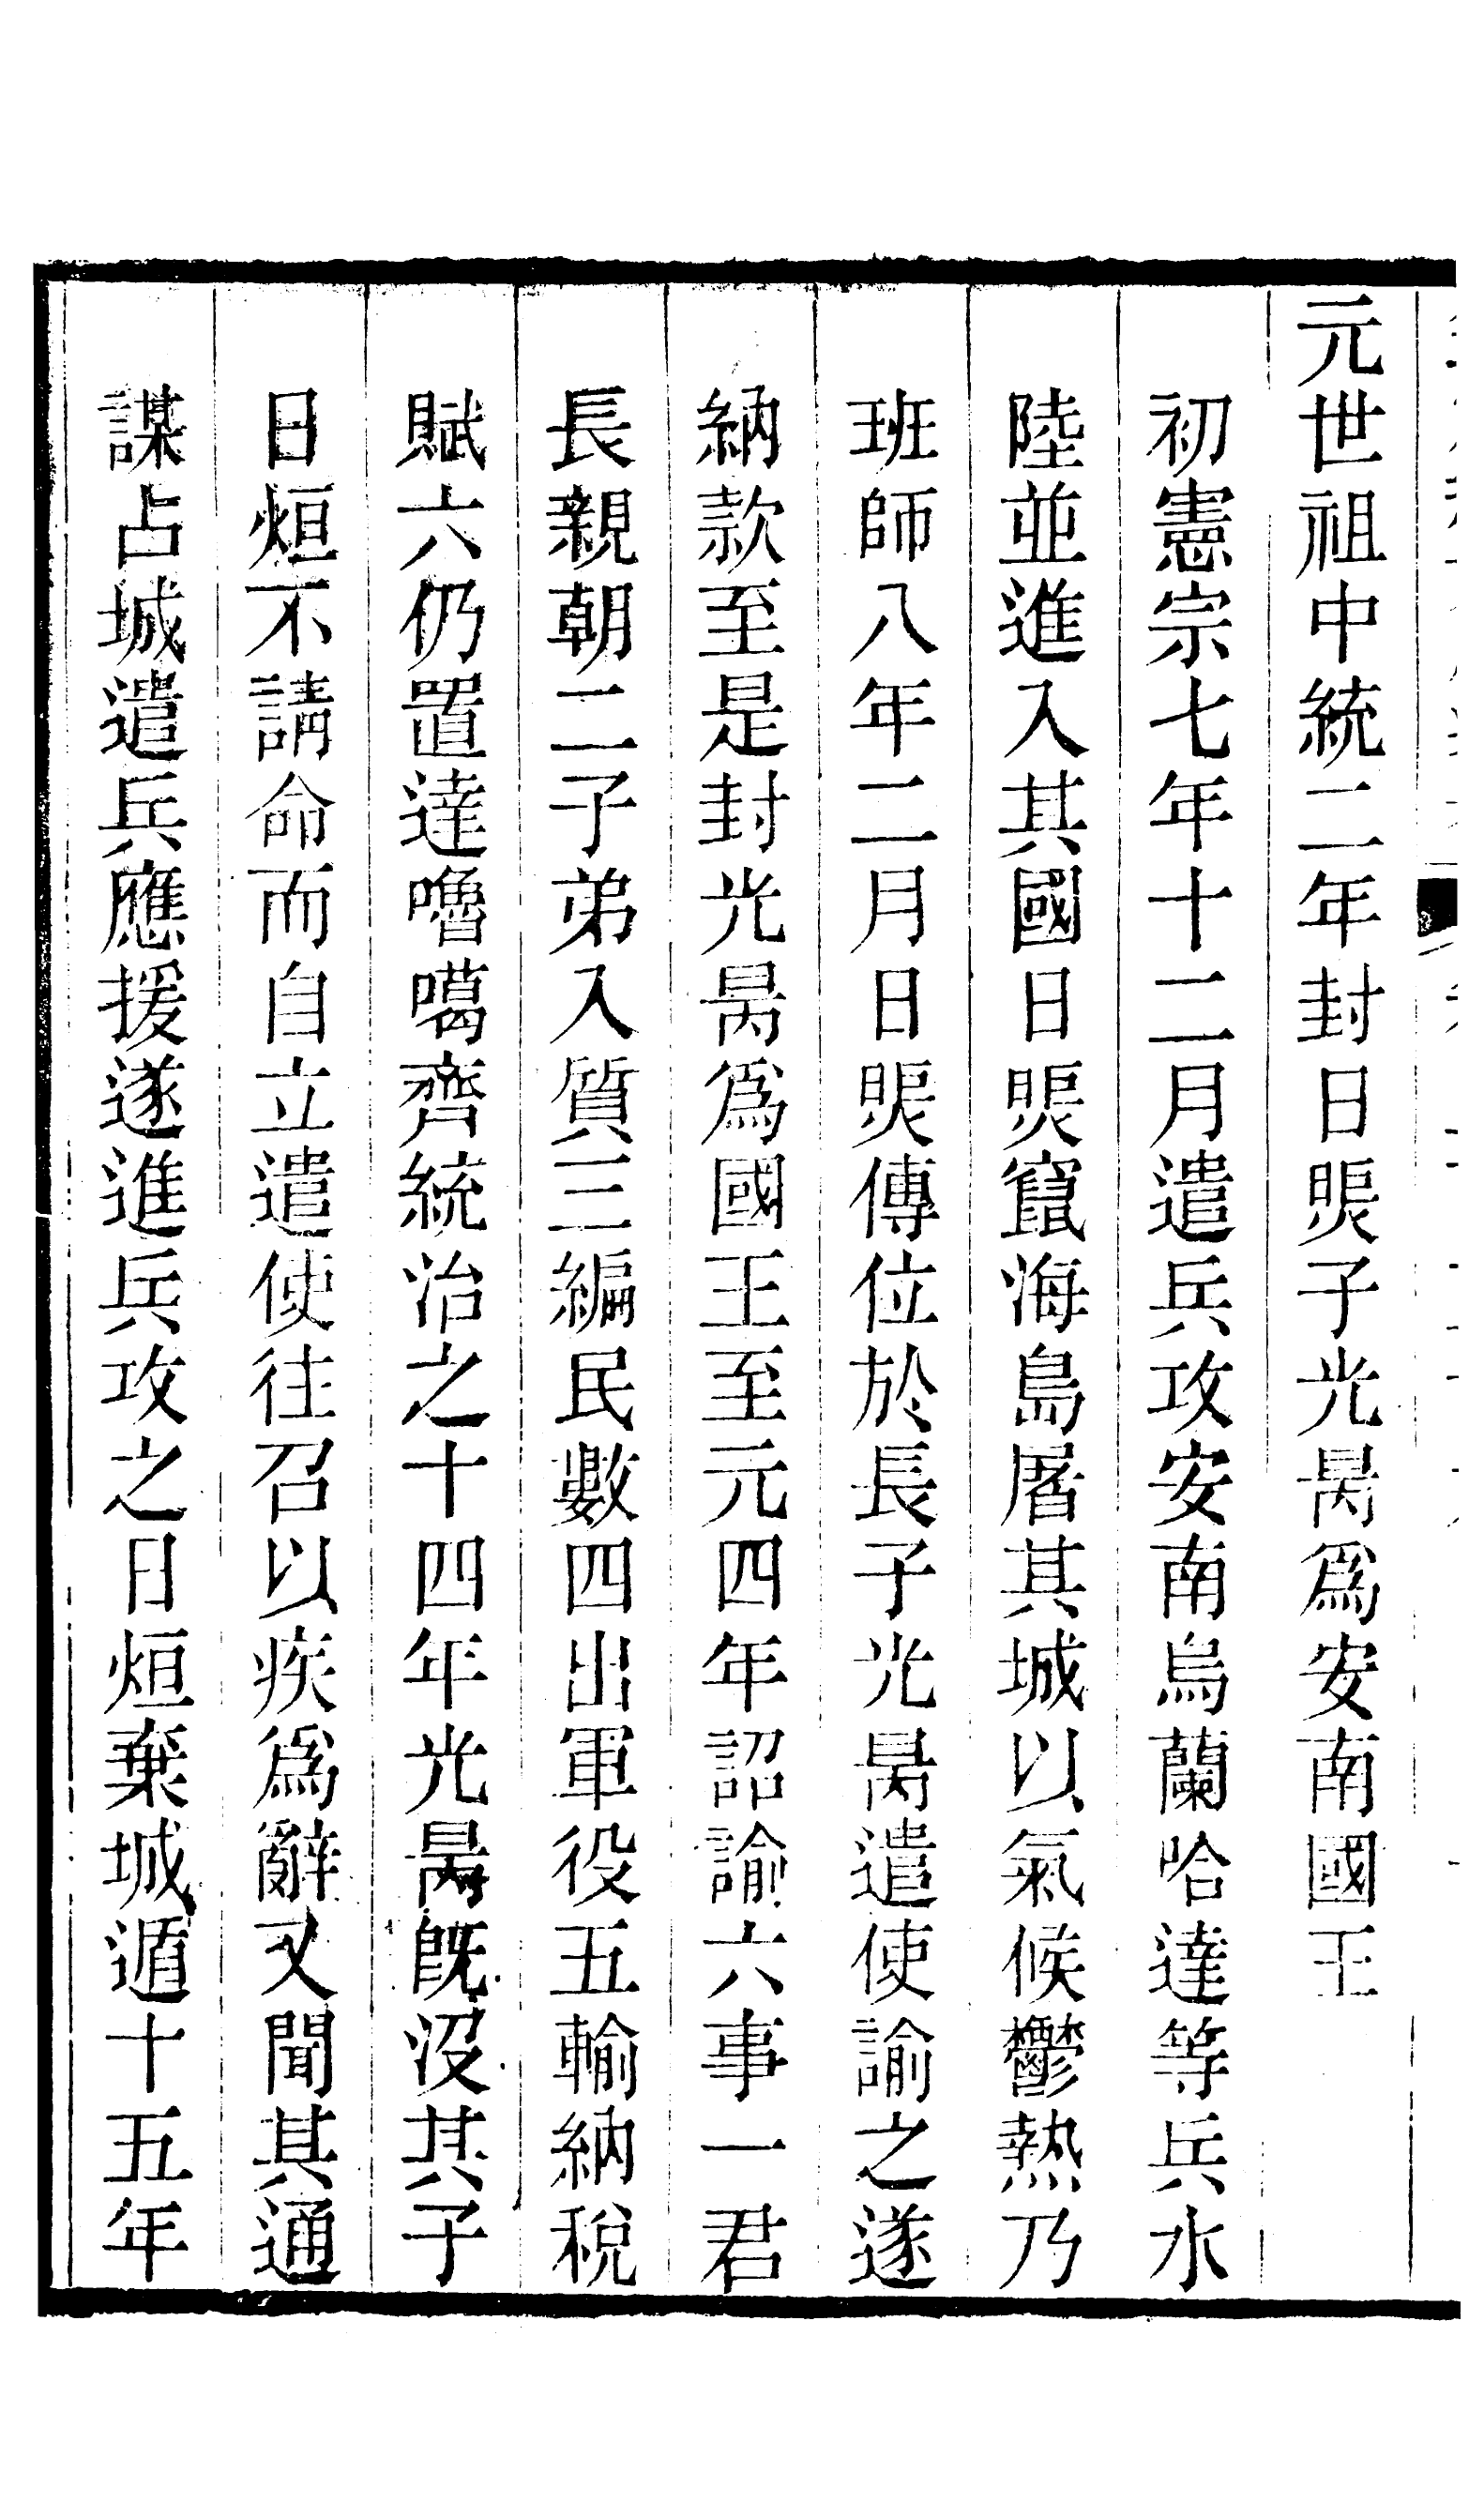 元世祖中統二年封日煚子光昺爲安南國王
初憲宗七年十二月遣兵攻安南烏蘭哈達等兵水
陸並進入其國日煚竄海島屠其城以氣候鬱熱乃
班師八年二月日煚傳位於長子光昺遣使諭之遂
納款至是封光昺爲國王至元四年詔諭六事一君
長親朝二子弟入質三編民數四出軍役五輸納稅
賦六仍置達嚕噶齊統治之十四年光昺旣沒其子
日烜不請命而自立遣使往召以疾爲辭又聞其通
謀占城遣兵應援遂進兵攻之日烜棄城遁十五年